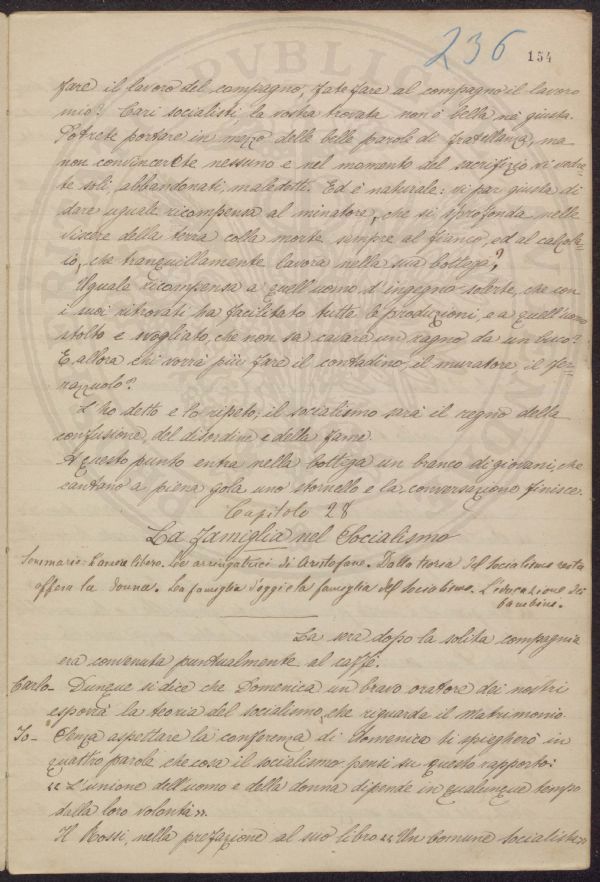 236 154
fare il lavoro del compagno, fate fare al compagno il lavoro
mio? Cari socialisti, la vostra trovata non è bella nè giusta.
Potrete portare in mezzo delle belle parole di fratellanza, ma
non convincerete nessuno e nel momento del sacrifizio vi vedre-
te soli, abbandonati, maledetti. Ed è naturale: vi par giusta di
dare uguale ricompensa al minatore, che si sprofonda nelle
viscere della terra colla morte sempre al fianco, ed al calzola-
io, che tranquillamente lavora nella sua bottega?
Uguale ricompensa a quell'uomo d'ingegno solerte, che con
i suoi ritrovati ha facilitato tutte le produzioni, e a quell'uomo
stolto e svogliato, che non sa cavare un ragno da un buco?
E allora chi vorrà più fare il contadino, il muratore, il fer-
razzuolo?
L'ho detto e lo ripeto; il socialismo sarà il regno della
confusione, del disordine e della fame.
A questo punto entra nella bottega un branco di giovani, che
cantano a piena gola uno stornello e la conversazione finisce.
Capitolo 28
La famiglia nel Socialismo
Sommario: L'amore libero. Le arringatrici di Aristofane. Dalla teoria del socialismo resta
offesa la donna. La famiglia d'oggi e la famiglia del socialismo. L'educazione dei
bambini.
La sera dopo la solita compagnia
era convenuta puntualmente al caffè.
Carlo- Dunque si dice che Domenica un bravo oratore dei nostri
esporrà la teoria del socialismo, che riguarda il matrimonio.
Io- Senza aspettare la conferenza di domenica ti spiegherò in
quattro parole che cosa il socialismo pensi su questo rapporto:
«L'unione dell'uomo e della donna dipende in qualunque tempo
dalla loro volontà».
Il Rossi, nella prefazione al suo libro «Un Comune socialista»